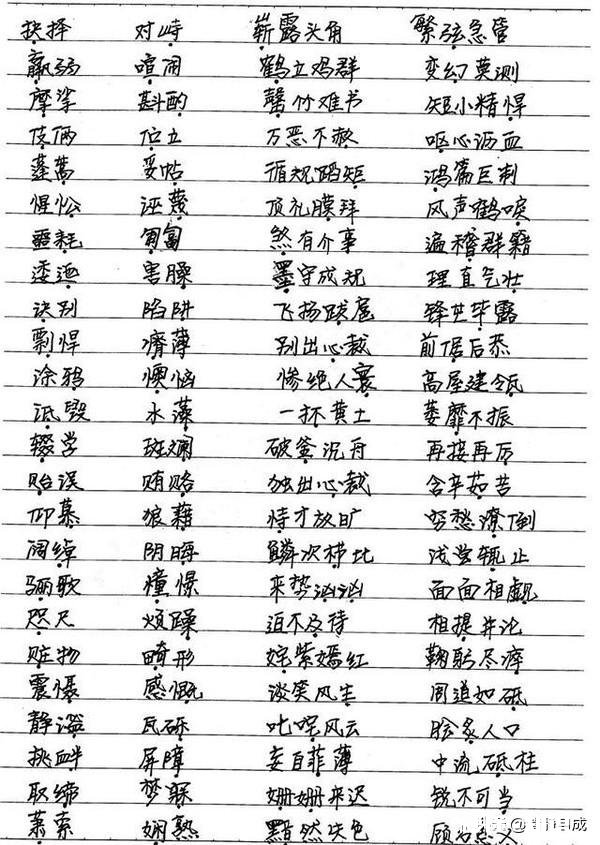 抉择 对峙 崭露头角 繁弦急管
羸弱 喧闹 鹤立鸡群 变幻莫测
摩挲 斟酌 罄竹难书 短小精悍
伎俩 伫立 万恶不赦 呕心沥血
蓬蒿 妥帖 循规蹈矩 鸿篇巨制
惺忪 诬蔑 顶礼膜拜 风声鹤唳
噩耗 匍匐 煞有介事 遍稽群籍
逶迤 害臊 墨守成规 理直气壮
诀别 陷阱 飞扬跋扈 锋芒毕露
剽悍 瘠薄 别出心裁 前倨后恭
涂鸦 懊恼 惨绝人寰 高屋建瓴
诋毁 水藻 一抔黄土 萎靡不振
辍学 斑斓 破釜沉舟 再接再厉
贻误 贿赂 独出心裁 含辛茹苦
仰慕 狼藉 恃才放旷 穷愁潦倒
阔绰 阴晦 鳞次栉比 浅尝辄止
骊歌 憧憬 来势汹汹 面面相觑
咫尺 烦躁 迫不及待 相提并论
赃物 畸形 姹紫嫣红 鞠躬尽瘁
震慑 感慨 谈笑风生 周道如砥
静谧 瓦砾 叱咤风云 脍炙人口
挑衅 屏障 妄自菲薄 中流砥柱
取缔 梦寐 姗姗来迟 锐不可当
萧索 娴熟 黯然失色 顾名思义